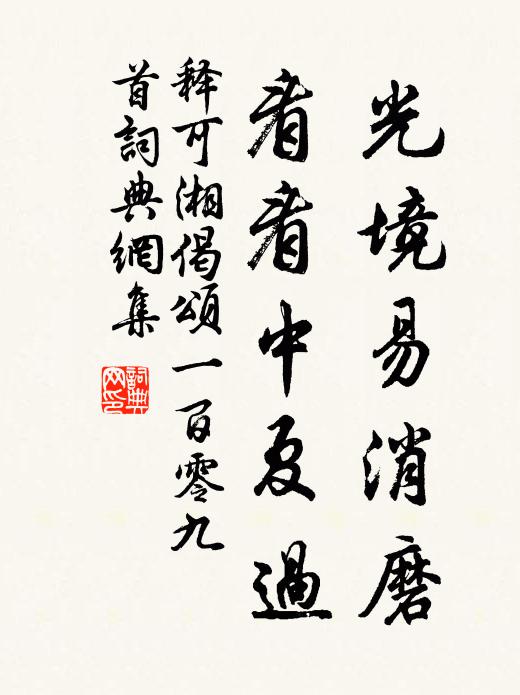 光境易消磨
看看中夏過
释可湘偈頌一百零九
首詞典網集
詞典網印